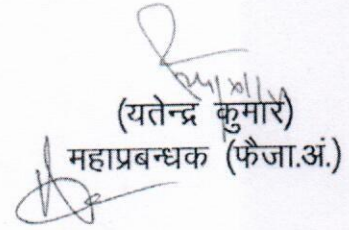 (यतेन्द्र कुमार)
महाप्रबन्धक (फैजा.अं.)